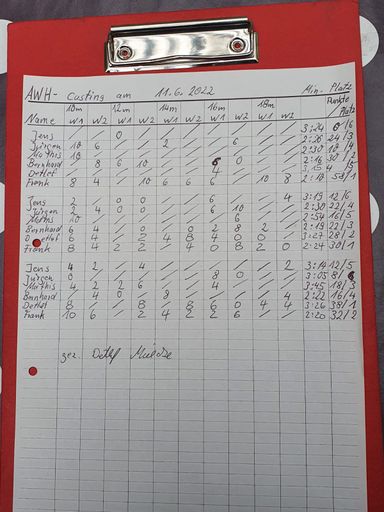 AWH- Casting am 11.6.2022 Min.- Platz
10m 12m 14m 16m 18m Punkte / Platz
Name W1 W2 W1 W2 W1 W2 W1 W2 W1 W2
Jens / / 0 / / / / / / / 3:24 0/6
Jürgen 10 6 / / 2 / / 6 / / 2:26 24/3
Mathis 10 / / / / / / / / /
Bernhard / 8 6 10 / / 6 / / / 2:16 30/2
Detlef / / / / / / 4 / / /
Frank 8 4 / 10 6 6 6 / 10 8 2:18 58/1
Jens 2 / 0 0 / / 6 / / 4 3:19 12/6
Jürgen 2 4 0 0 / / 6 10 / / 2:30 22/4
Mathis 10 / / / / / / 6 / / 2:54 16/5
Bernhard 6 4 / 0 / 0 2 8 2 / 2:19 22/3
Detlef 6 4 / 2 4 8 4 0 0 / 3:27 28/2
Frank 8 4 2 2 / 4 0 8 2 0 2:24 30/1
Jens 4 2 / 4 / / / / / 2 3:14 12/5
Jürgen 0 / / / / / 8 0 / / 3:03 8/6
Mathis 4 2 2 6 / / 4 / / / 3:45 18/3
Bernhard / 4 0 / 8 / / / / 4 2:22 16/4
Detlef 8 / / 8 / 8 6 0 4 4 3:26 38/1
Frank 10 6 / 2 4 2 2 6 / / 2:20 32/2
gez. Detlef